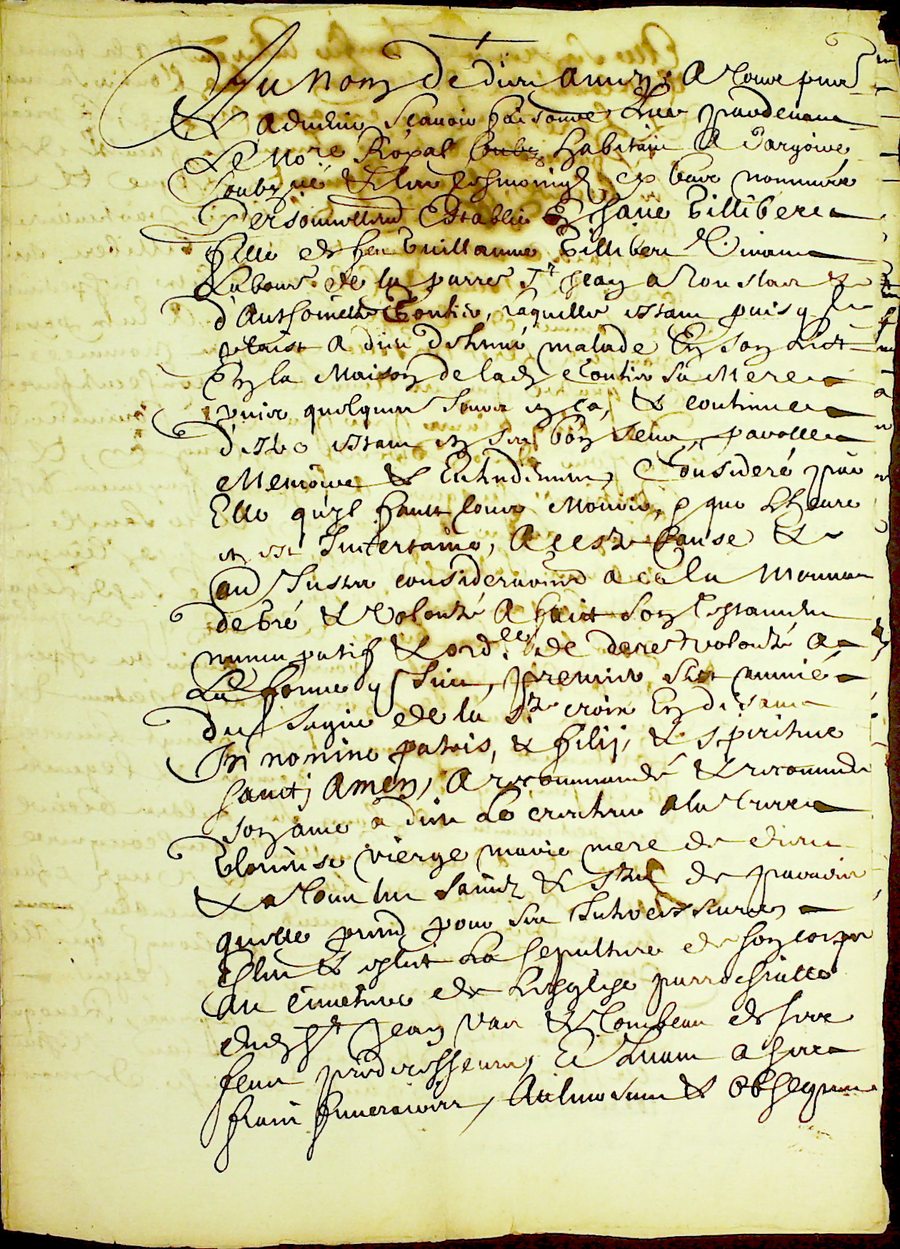 Au Nom de dieu amen, A tous pnts
& advenir sçavoir faisons que pardevant
Le No.re Royal habitant
soubz.né & les tesmoings cy bas nommés
Personnellem.t establie Jeane Gillibert
fille de feu Guillaume Gillibert Vivant
Labour.r de la parr.e S.t Jean
d'Anthoinette Coutier, laquelle estant puis q. le
plaist a dieu detenue malade En son Lict
En la Maison de lad. Coutier sa Mere
puis quelques jours en ça, & continue
d'estre estant en ses bon sens, parolle
Memoire & Entendement, Consideré par
Elle qu'yl faut tous Mourir, & que L'heure
en est Incertaine, A ceste Cause &
au justes considerations a ce la Mouvant
de gré & volonté A fait son testament
nuncupatif & ord.ce de dere volonté A
La forme q. suit, premier s'est munie
du signe de la S.te croix En disant
In nomine patris, & filij, & spiritus
sancti Amen, A recommandé & recomande
son ame a dieu Le createur a la tres
Glorieuse vierge marie mere de dieu
& a tous les saints & s.tes de paradis
quelle prend pour ses Intercesseurs
Eslu & eslit La sepulture de son corps
Au cimetiere de L'esglise parrochialle
dud. S.t Jean & Tombeau de ses
feus predecesseurs, Et Quant a ses
frais funeraires, Aulmosnes & obseques